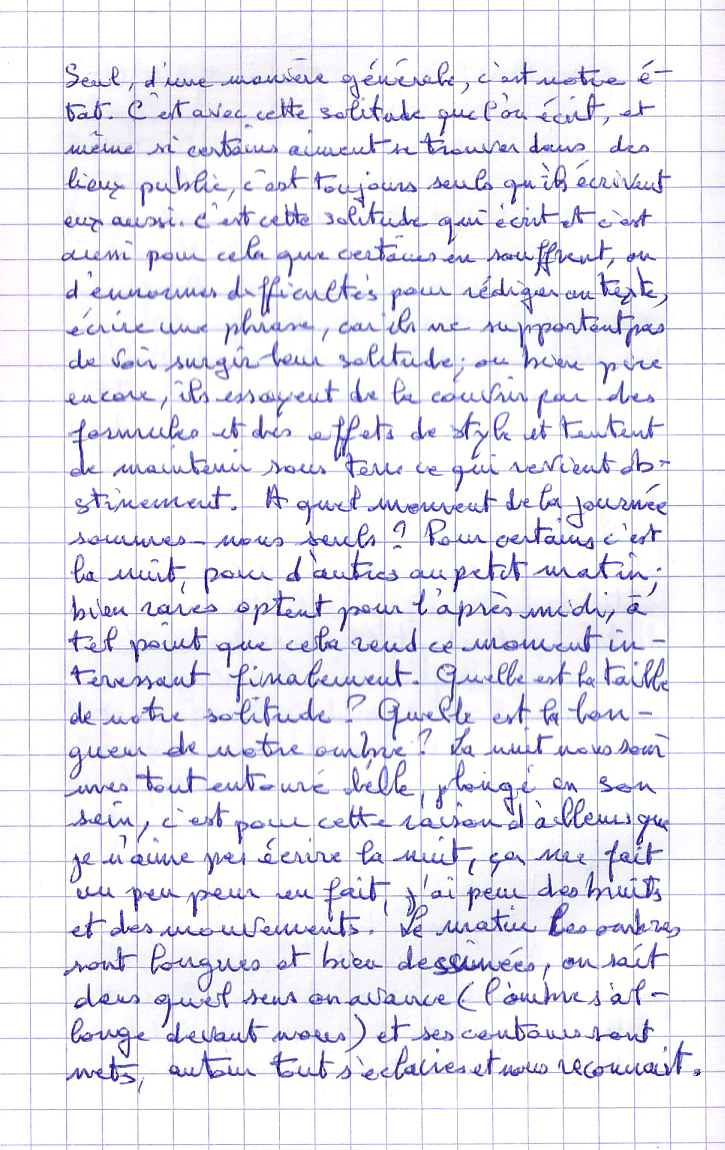 Seul, d'une manière générale, c'est notre é-
tat. C'est avec cette solitude que l'on écrit, et
même si certains aiment se trouver dans des
lieux public, c'est toujours seuls qu'ils écrivent
eux aussi. C'est cette solitude qui écrit et c'est
aussi pour cela que certains en souffrent, on
d'ennormes difficultés pour rédiger un texte,
écrire une phrase, car ils ne supportent pas
de voir surgir leur solitude; ou bien pire
encore, ils essayent de la couvrir par des
formules et des effets de style et tentent
de maintenir sous terre ce qui revient ob-
stinement. A quel moment de la journée
sommes-nous seuls? Pour certains c'est
la nuit, pour d'autres au petit matin;
bien rares optent pour l'après midi, à
tel point que cela rend ce moment in-
teressant finalement. Quelle est la taille
de notre solitude? Quelle est la lon-
gueur de notre ombre? La nuit nous som
mes tout entouré d'elle, plongé en son
sein, c'est pour cette raison d'ailleurs que
je n'aime pas écrire la nuit, ça me fait
un peu peur en fait, j'ai peur des bruits
et des mouvements. Le matin les ombres
sont longues et bien dessinées, on sait
dans quel sens on avance (l'ombre s'al-
longe devant nous) et ses contours sont
nets, autour tout s'eclaires et nous reconnait.